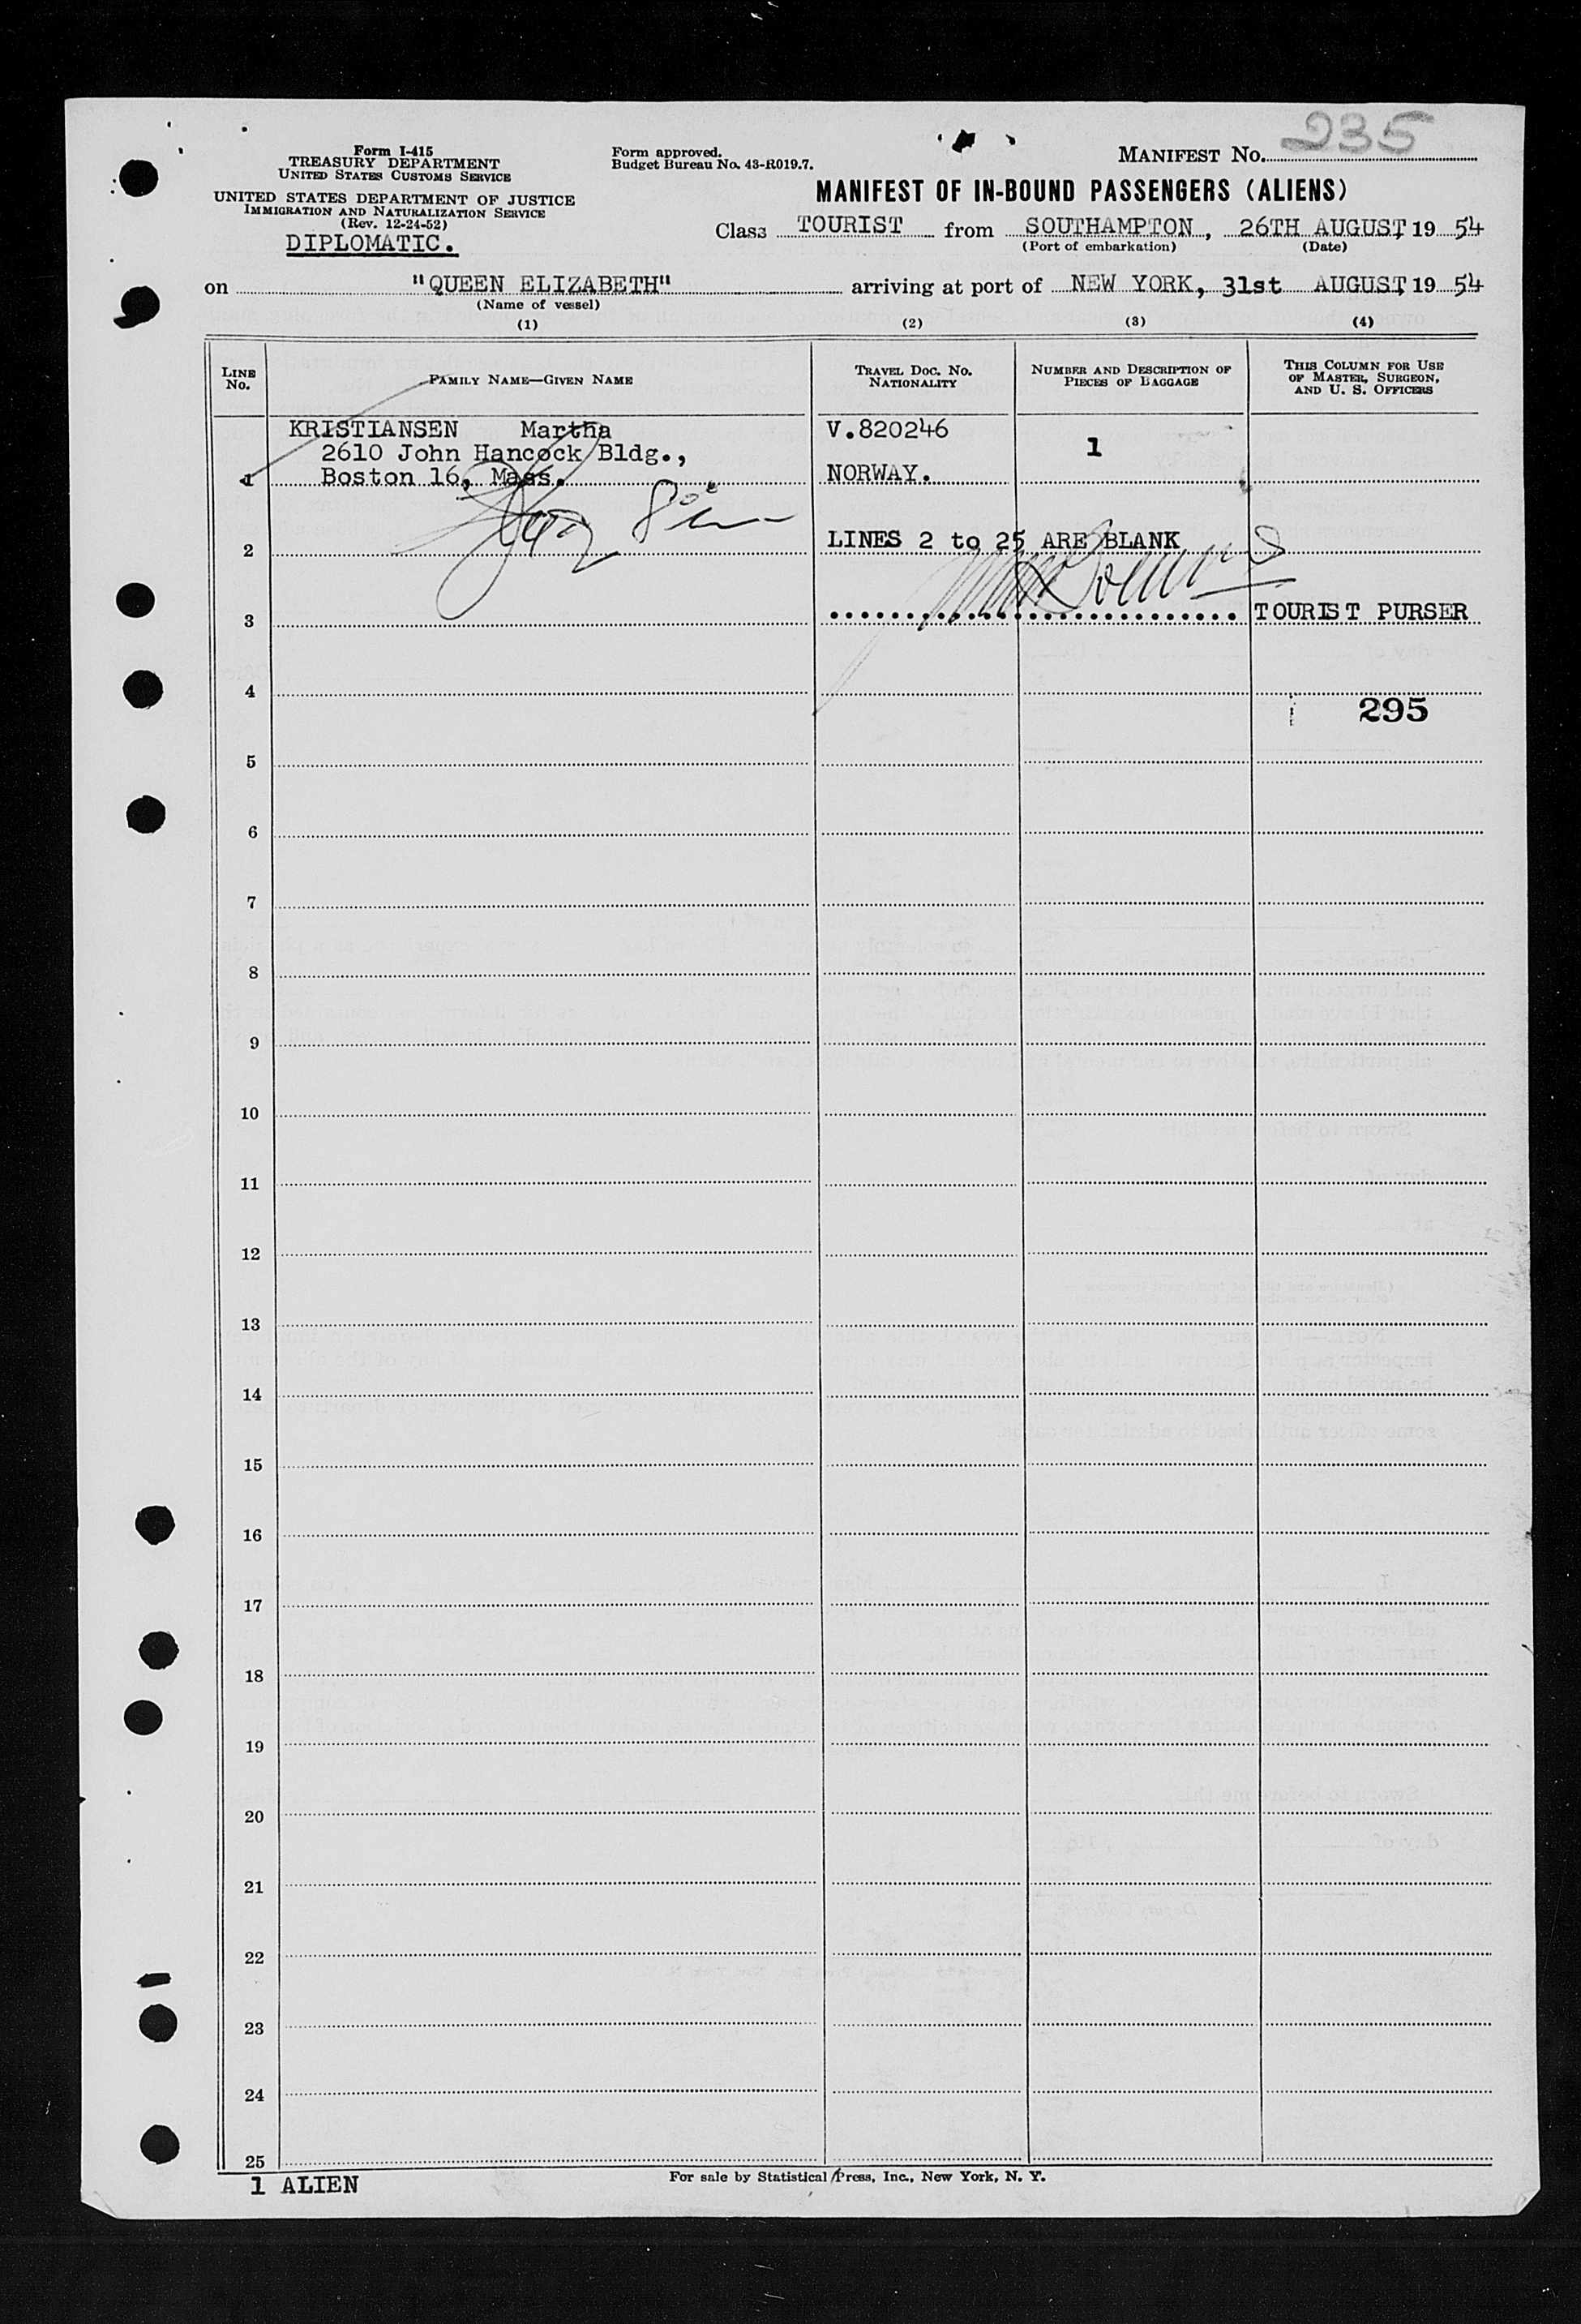 Form I-415
TREASURY DEPARTMENT
UNITED STATES CUSTOMS SERVICE
UNITED STATES DEPARTMENT OF JUSTICE
IMMIGRATION AND NATURALIZATION SERVICE
(Rev. 12-24-52)
DIPLOMATIC.
Form approved.
Budget Bureau No. 43-R019.7.
MANIFEST NO. 235
MANIFEST OF IN-BOUND PASSENGERS (ALIENS)
Class TOURIST from SOUTHAMPTON, 26TH AUGUST, 19 54
(Port of embarkation) (Date)
on "QUEEN ELIZABETH" arriving at port of NEW YORK, 31st AUGUST, 19 54
(Name of vessel)
(1) (2) (3) (4)
LINE NO. FAMILY NAME—GIVEN NAME TRAVEL DOC. NO. NATIONALITY NUMBER AND DESCRIPTION OF PIECES OF BAGGAGE THIS COLUMN FOR USE OF MASTER, SURGEON, AND U. S. OFFICERS
KRISTIANSEN Martha V.820246
2610 John Hancock Bldg., 1
1 Boston 16, Mass. NORWAY.
2 LINES 2 to 25 ARE BLANK
3 TOURIST PURSER
4
295
5
6
7
8
9
10
11
12
13
14
15
16
17
18
19
20
21
22
23
24
25
1 ALIEN
For sale by Statistical Press, Inc., New York, N. Y.